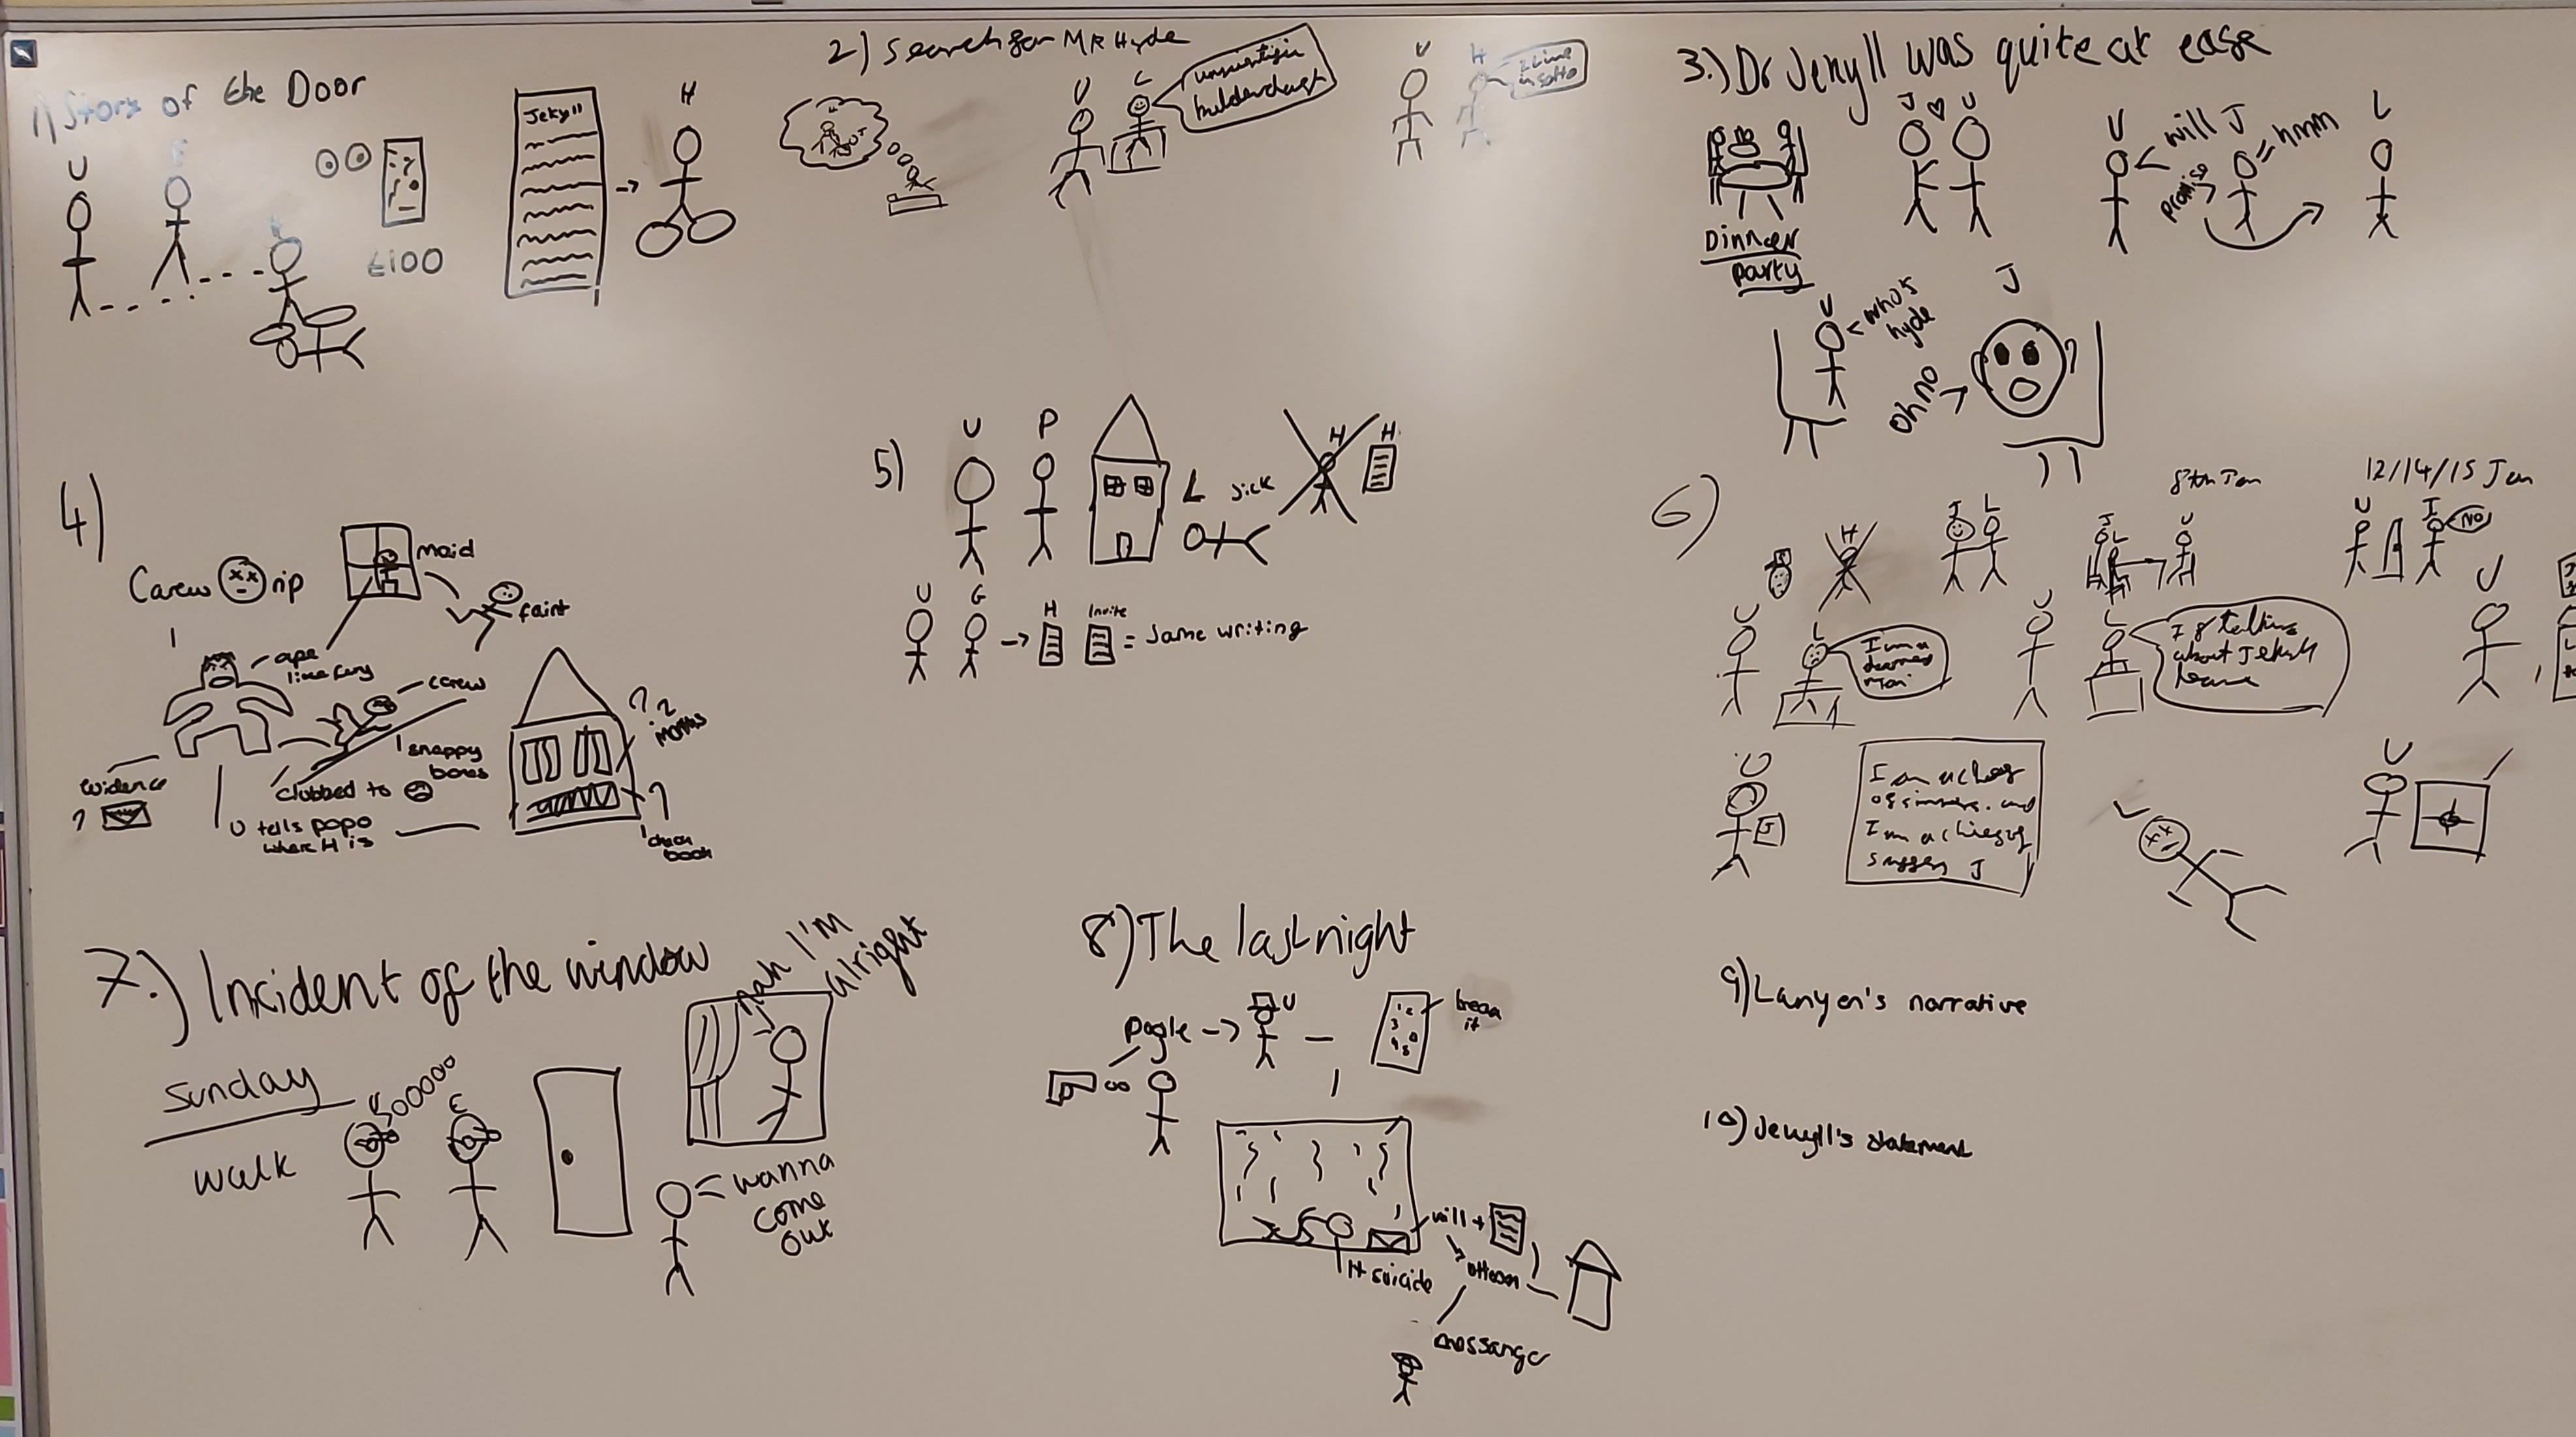 1) Story of the Door
U
E
H
£100
2) Search for Mr Hyde
Jekyll
H
U
L
unscientific
balderdash
U
H
I live
in soho
3.) Dr Jekyll was quite at ease
Dinner
party
J ♡ U
U
will J
promise
hmm
L
U
who's
hyde
J
Oh no
4)
Carew
rip
maid
faint
ape
like fury
carew
snappy
bones
clubbed to
evidence
?
U tells popo
where H is
? 2
months
?
check
book
5)
U
P
L
sick
H
H
U
G
H
Invite
= same writing
6)
H
J
L
8th Jan
J
L
U
12/14/15 Jan
U
J
NO
U
L
I am a
doomed
man
U
L
If talking
about Jekyll
leave
U
U
J
I am a chief
of sinners. and
I am a chief of
suffers J
L
U
7.) Incident of the window
Sunday
walk
U
E
nah I'm
alright
wanna
come
out
8) The last night
pogle ->
U
break
it
will +
H suicide
messanger
9) Lanyon's narrative
10) Jekyll's statement